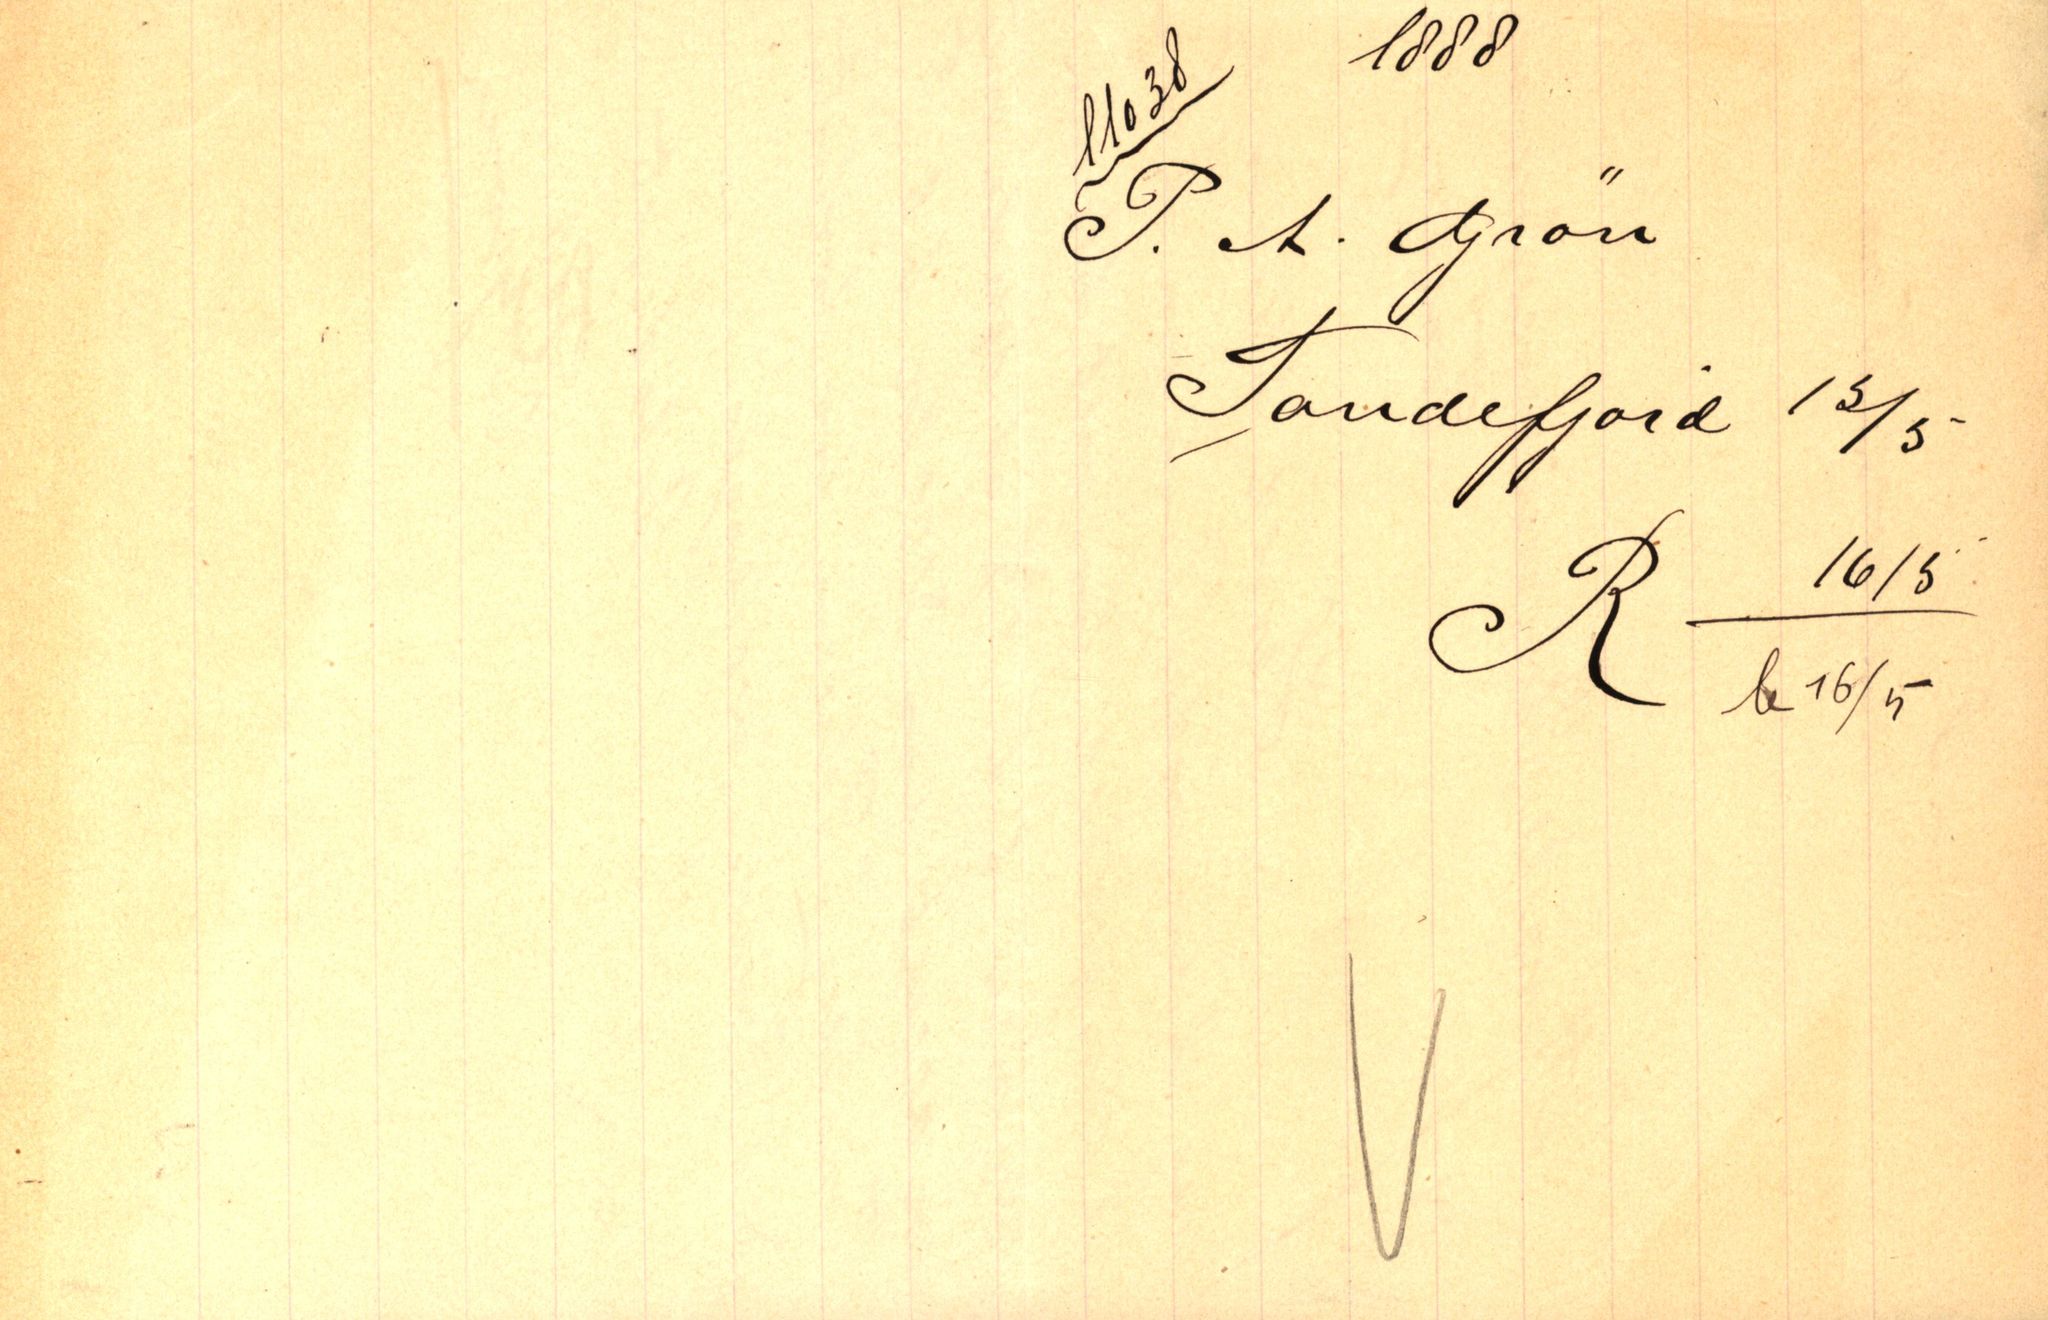 1888
11038
P. A. Grön
Sandefjord 15/5
R 16/5
b 16/5